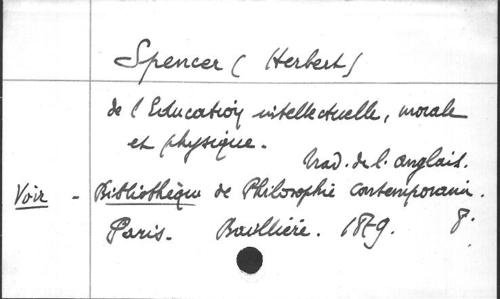 Spencer (Herbert)
de l'Education intellectuelle, morale
et physique.
trad. de l'anglais.
Voir - Bibliothèque de Philosophie contemporain.
Paris. Baillière. 1879. 8°.